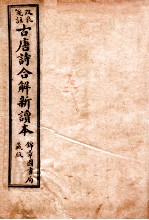 改良
古唐詩合解新讀本
錦章圖書局
藏版